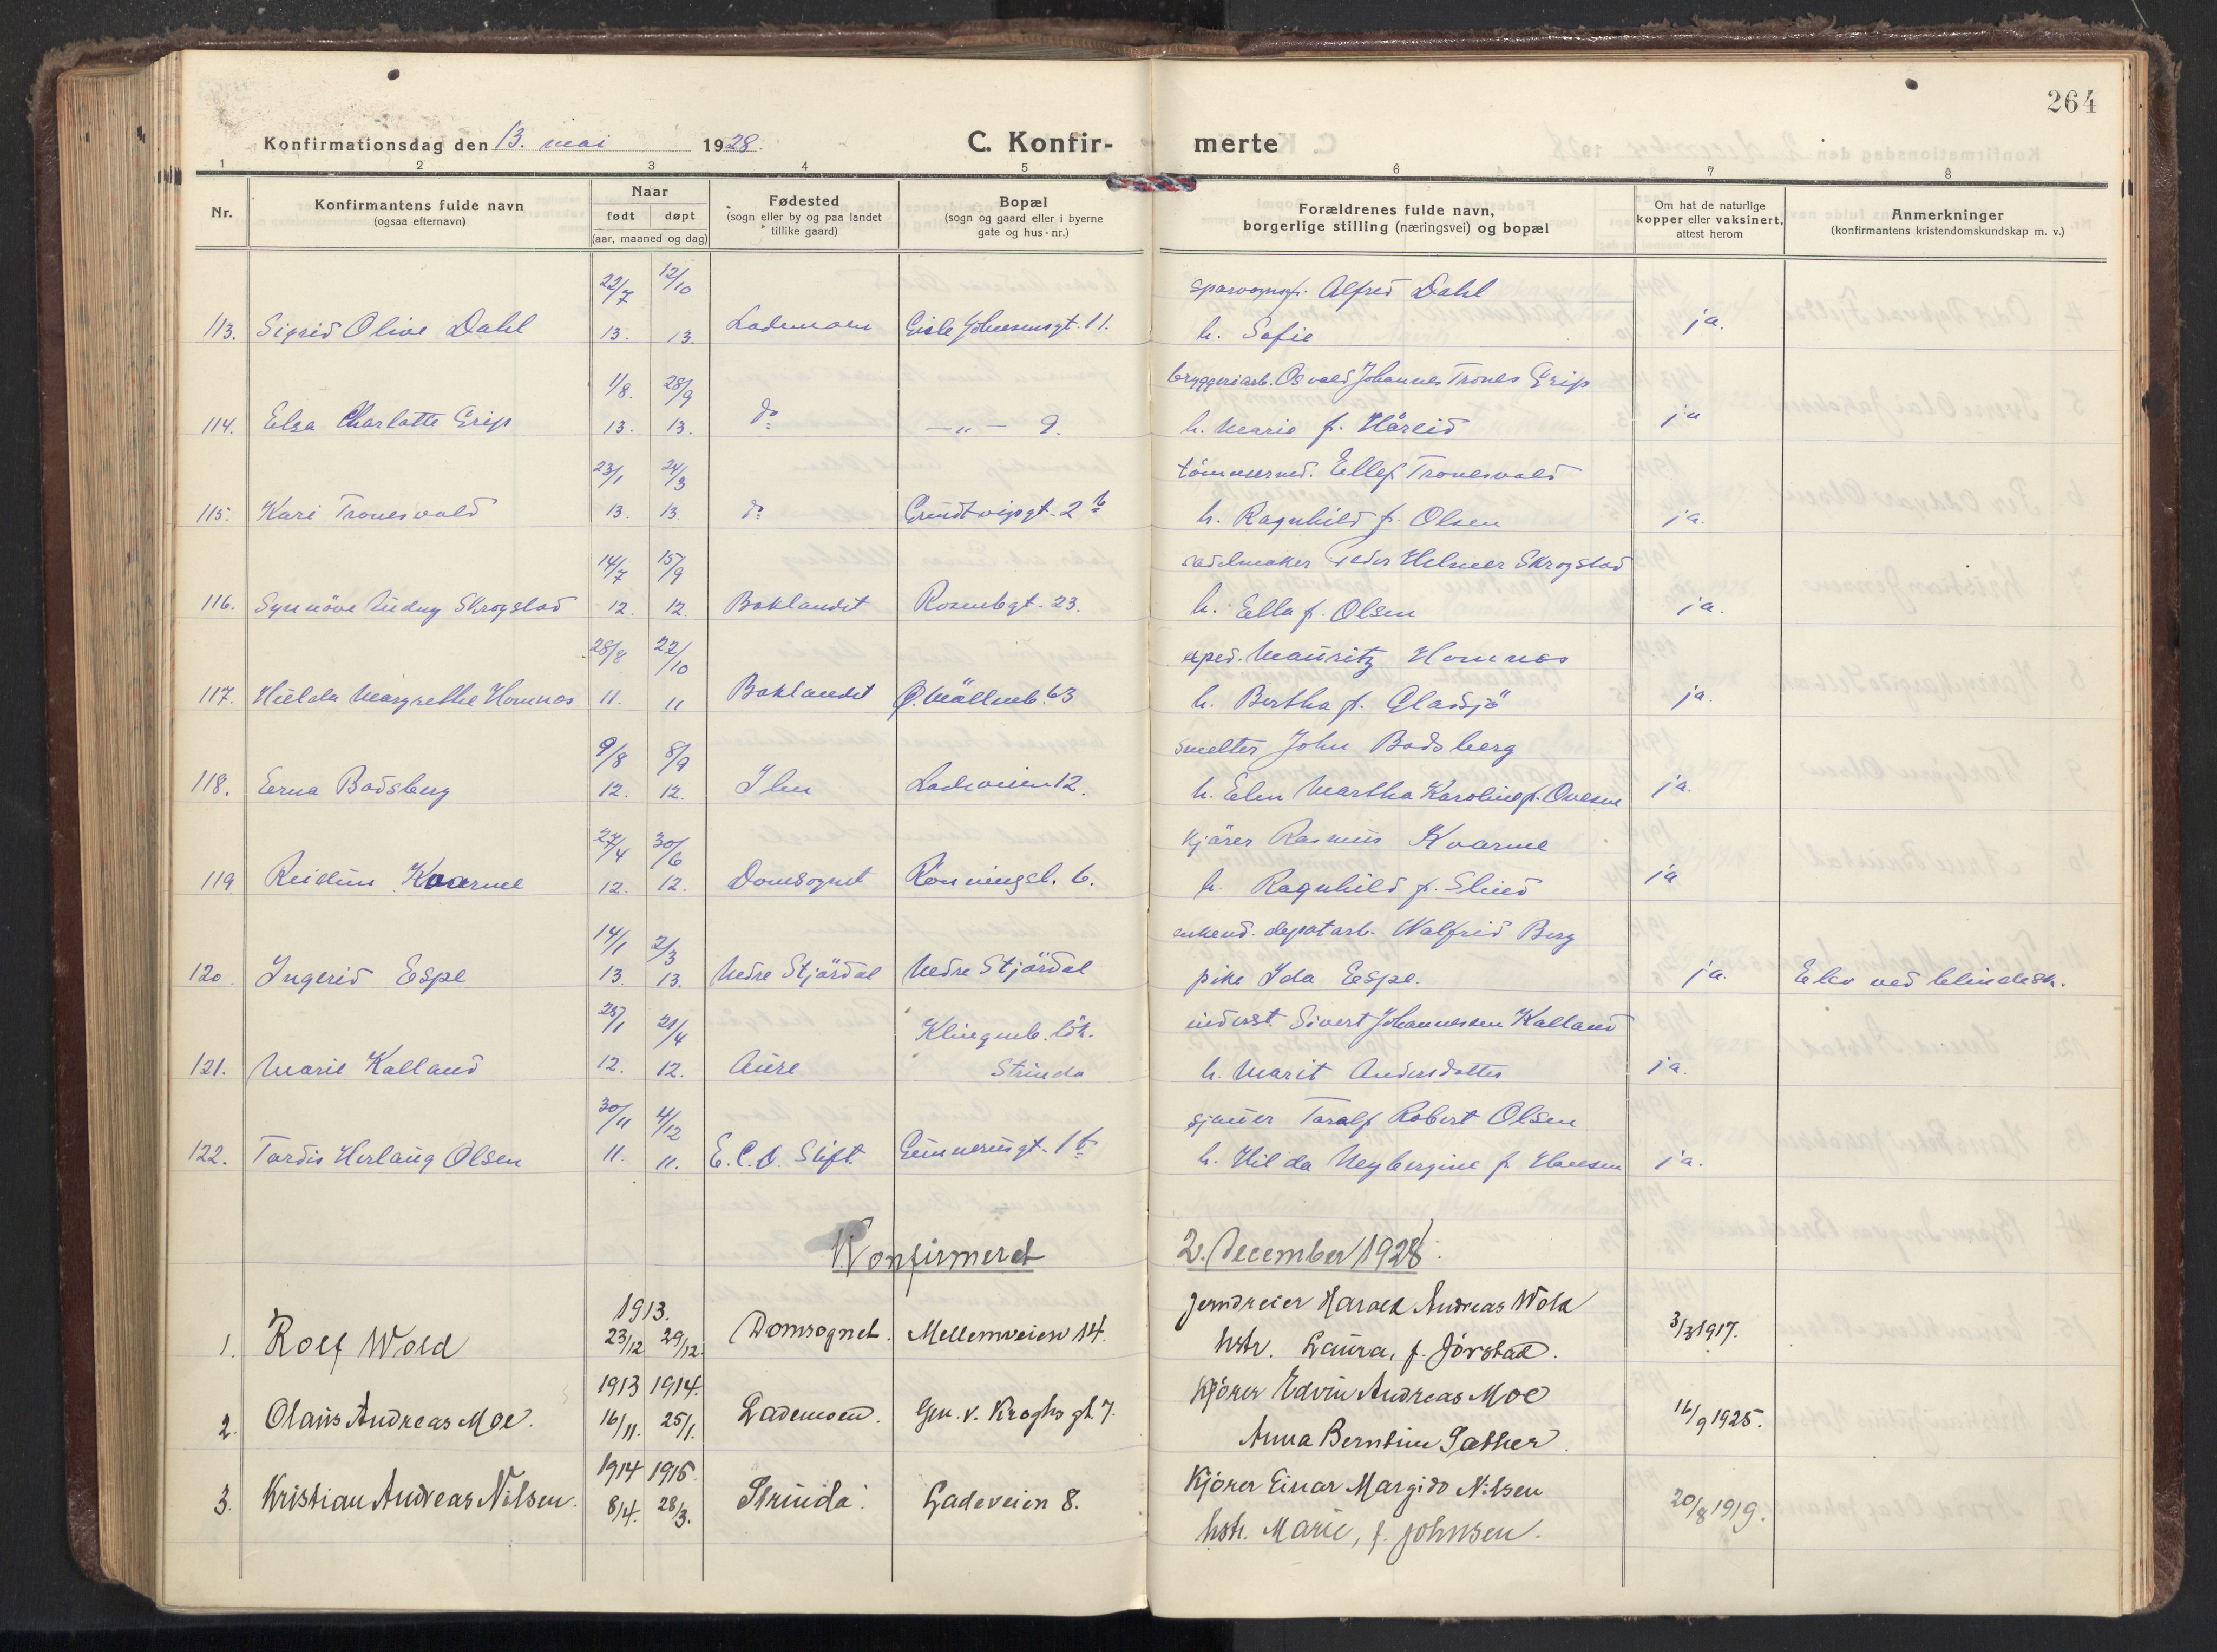 264
Konfirmationsdag den 13. mai 1928. C. Konfirmerte
1 2 3 4 5 6 7 8
Nr.
Konfirmantens fulde navn
(ogsaa efternavn)
Naar
født døpt
(aar, maaned og dag)
Fødested
(sogn eller by og paa landet
tillike gaard)
Bopæl
(sogn og gaard eller i byerne
gate og hus-nr.)
Forældrenes fulde navn,
borgerlige stilling (næringsvei) og bopæl
Om hat de naturlige
kopper eller vaksinert,
attest herom
Anmerkninger
(konfirmantens kristendomskundskap m. v.)
22/7 12/10 sporvognsf. Alfred Dahl
113. Sigrid Olive Dahl 13. 13. Lademoen Gisle Johnsensgt. 11. h. Sofie ja.
1/8. 28/9 bryggeriarb. Osvald Johannes Trones Grip
114. Elsa Charlotte Grip 13. 13. do - " - 9. h. Marie f. Håreid ja
23/1 24/3 tömmermd. Ellef Tronesvold
115. Kari Tronesvold 13. 13. do Grundtvigsgt. 2 b h. Ragnhild f. Olsen ja.
14/7 15/9 sadelmaker Peder Helmer Skrogstad
116. Synnöve Audny Skrogstad 12. 12. Baklandet Rosenbgt. 23. h. Ella f. Olsen ja.
28/8 22/10 exped. Mauritz Homnes
117. Hulda Margrethe Homnes 11. 11 Baklandet Ø. Möllenb. 63 h. Bertha f. Gladsjö ja.
9/8 8/9 smelter John Bodsberg
118. Erna Bodsberg 12. 12. Ilen Ladeveien 12. h. Elen Martha Karoline f. Ovesen ja.
27/4 30/6 kjörer Rasmus Kvarme
119 Reidun Kvarme 12. 12. Domsognet Rönningsl. 6. h. Ragnhild f. Slind ja
14/1 2/3 enkemd. depotarb. Walfrid Berg
120. Ingerid Espe 13. 13. Nedre Stjördal Nedre Stjördal pike Ida Espe. ja. Elev ved blindesk.
28/1 21/4 Klingenb. lök. inderst. Sivert Johannessen Kalland
121. Marie Kalland 12. 12. Aure Strinda h. Marit Andersdatter ja.
30/11 4/12 sjauer Toralf Robert Olsen
122. Tordis Herlaug Olsen 11. 11. E.C.D. Stift. Gunnerusgt. 1 b h. Hilda Neybergine f. Hansen ja.
Konfirmeret 2. december 1928.
1913. Jerndreier Harald Andreas Wold
1. Rolf Wold 23/12 29/12. Domsognet. Mellemveien 14. hstr. Laura, f. Jørstad. 3/3 1917.
1913 1914. Kjörer Edvin Andreas Moe
2. Olaus Andreas Moe. 16/11. 25/1. Lademoen. Gen. v. Kroghs gt 7. Anna Berntine Sather. 16/9 1925.
1914 1915. Kjörer Einar Margido Nilsen
3. Kristian Andreas Nilsen. 8/4. 28/3. Strinda. Ladeveien 8. hstr. Marie, f. Johnsen. 20/8 1919.